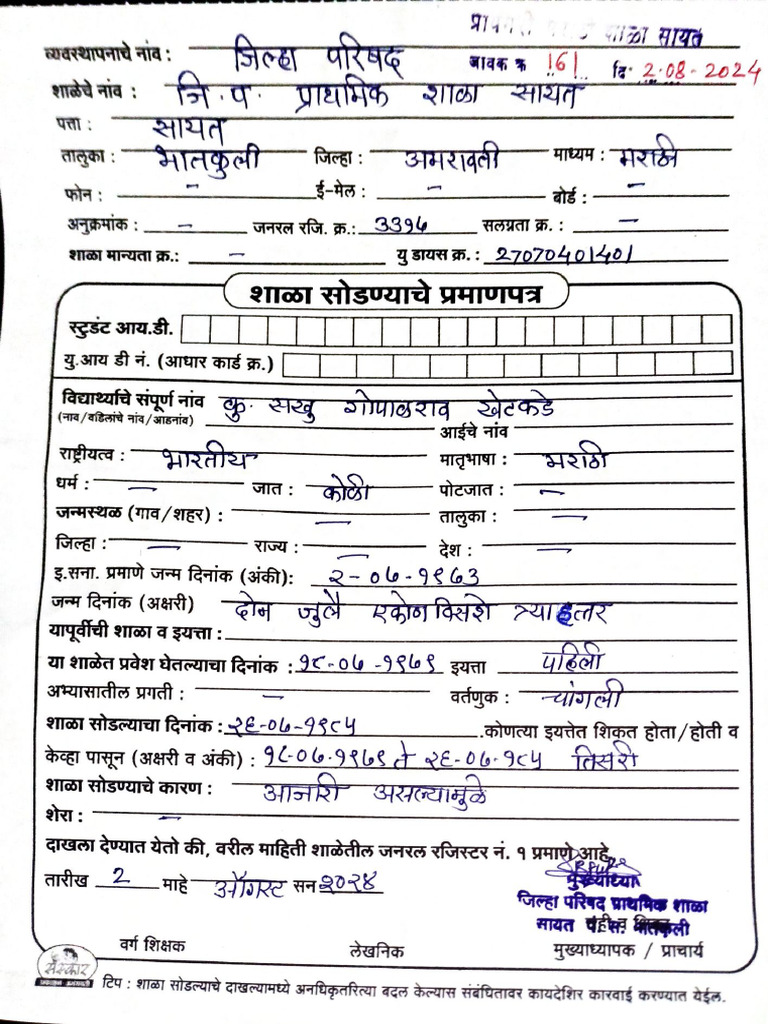 प्राथमिक शाळा सायत
व्यवस्थापनाचे नांव : जिल्हा परिषद जावक क्र 161 दि. 2.08-2024
शाळेचे नांव : जि.प. प्राथमिक शाळा सायत
पत्ता : सायत
तालुका : भातकुली जिल्हा : अमरावती माध्यम : मराठी
फोन : – ई-मेल : – बोर्ड : –
अनुक्रमांक : – जनरल रजि. क्र.: ३३१५ सलग्नता क्र. : –
शाळा मान्यता क्र.: – यु डायस क्र. : 27070401401
शाळा सोडण्याचे प्रमाणपत्र
स्टुडंट आय.डी.
यु.आय डी नं. (आधार कार्ड क्र.)
विद्यार्थ्याचे संपूर्ण नांव कु. सखु गोपाळराव खेटकडे
(नाव/वडिलांचे नांव/आडनांव)
आईचे नांव
राष्ट्रीयत्व : भारतीय मातृभाषा : मराठी
धर्म : – जात : कोळी पोटजात : –
जन्मस्थळ (गाव/शहर) : – तालुका : –
जिल्हा : – राज्य : – देश : –
इ.सना. प्रमाणे जन्म दिनांक (अंकी): २-०७-१९७३
जन्म दिनांक (अक्षरी) दोन जुलै एकोणविसशे त्र्याहत्तर
यापूर्वीची शाळा व इयत्ता :
या शाळेत प्रवेश घेतल्याचा दिनांक : १८-०७-१९७९ इयत्ता पहिली
अभ्यासातील प्रगती : – वर्तणुक : चांगली
शाळा सोडल्याचा दिनांक : २६-०७-१९८५ .कोणत्या इयत्तेत शिकत होता/होती व
केव्हा पासून (अक्षरी व अंकी) : १८-०७-१९७९ ते २६-०७-१९८५ तिसरी
शाळा सोडण्याचे कारण : आजारी असल्यामुळे
शेरा : –
दाखला देण्यात येतो की, वरील माहिती शाळेतील जनरल रजिस्टर नं. १ प्रमाणे आहे.
तारीख 2 माहे ऑगस्ट सन २०२४
मुख्याध्या
जिल्हा परिषद प्राथमिक शाळा
सायत पं. स. भातकुली
वर्ग शिक्षक लेखनिक मुख्याध्यापक / प्राचार्य
संस्कार
टिप : शाळा सोडल्याचे दाखल्यामध्ये अनधिकृतरित्या बदल केल्यास संबंधितावर कायदेशिर कारवाई करण्यात येईल.